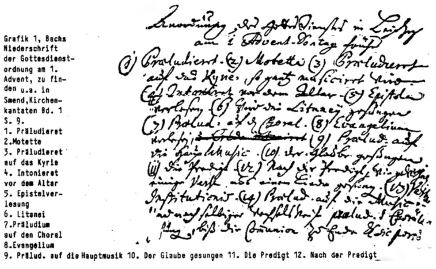 Grafik 1, Bachs
Niederschrift
der Gottesdienst-
ordnung am 1.
Advent, zu fin-
den u.a. in
Smend,Kirchen-
kantaten Bd. 1
S. 9.
1. Präludieret
2.Motette
3. Präludieret
auf das Kyrie
4. Intonieret
vor dem Altar
5. Epistelver-
lesung
6. Litanei
7.Präludium
auf den Choral
8.Evangelium
9. Präld. auf die Hauptmusik 10. Der Glaube gesungen 11. Die Predigt 12. Nach der Predigt
Anordnung des Gottesdienstes in Leipzig
am 1 Advent-Sontag frühe
(1) Præludieret. (2) Motetta (3) Præludieret
auf das Kyrie, so gantz musiciret wird
(4) Intoniret vor dem Altar (5) Epistola
verlesen (6) Wird die Litaney gesungen
(7) Prælud. auf den Choral. (8) Evangelium
verlesen (9) Prælud. auf
die HauptMusic. (10) der Glaube gesungen
(11) die Predigt (12) Nach der Predigt,
einige Verse aus einem Liede gesungen (13) Verba
Institutionis (14) Prælud. auf die Music.